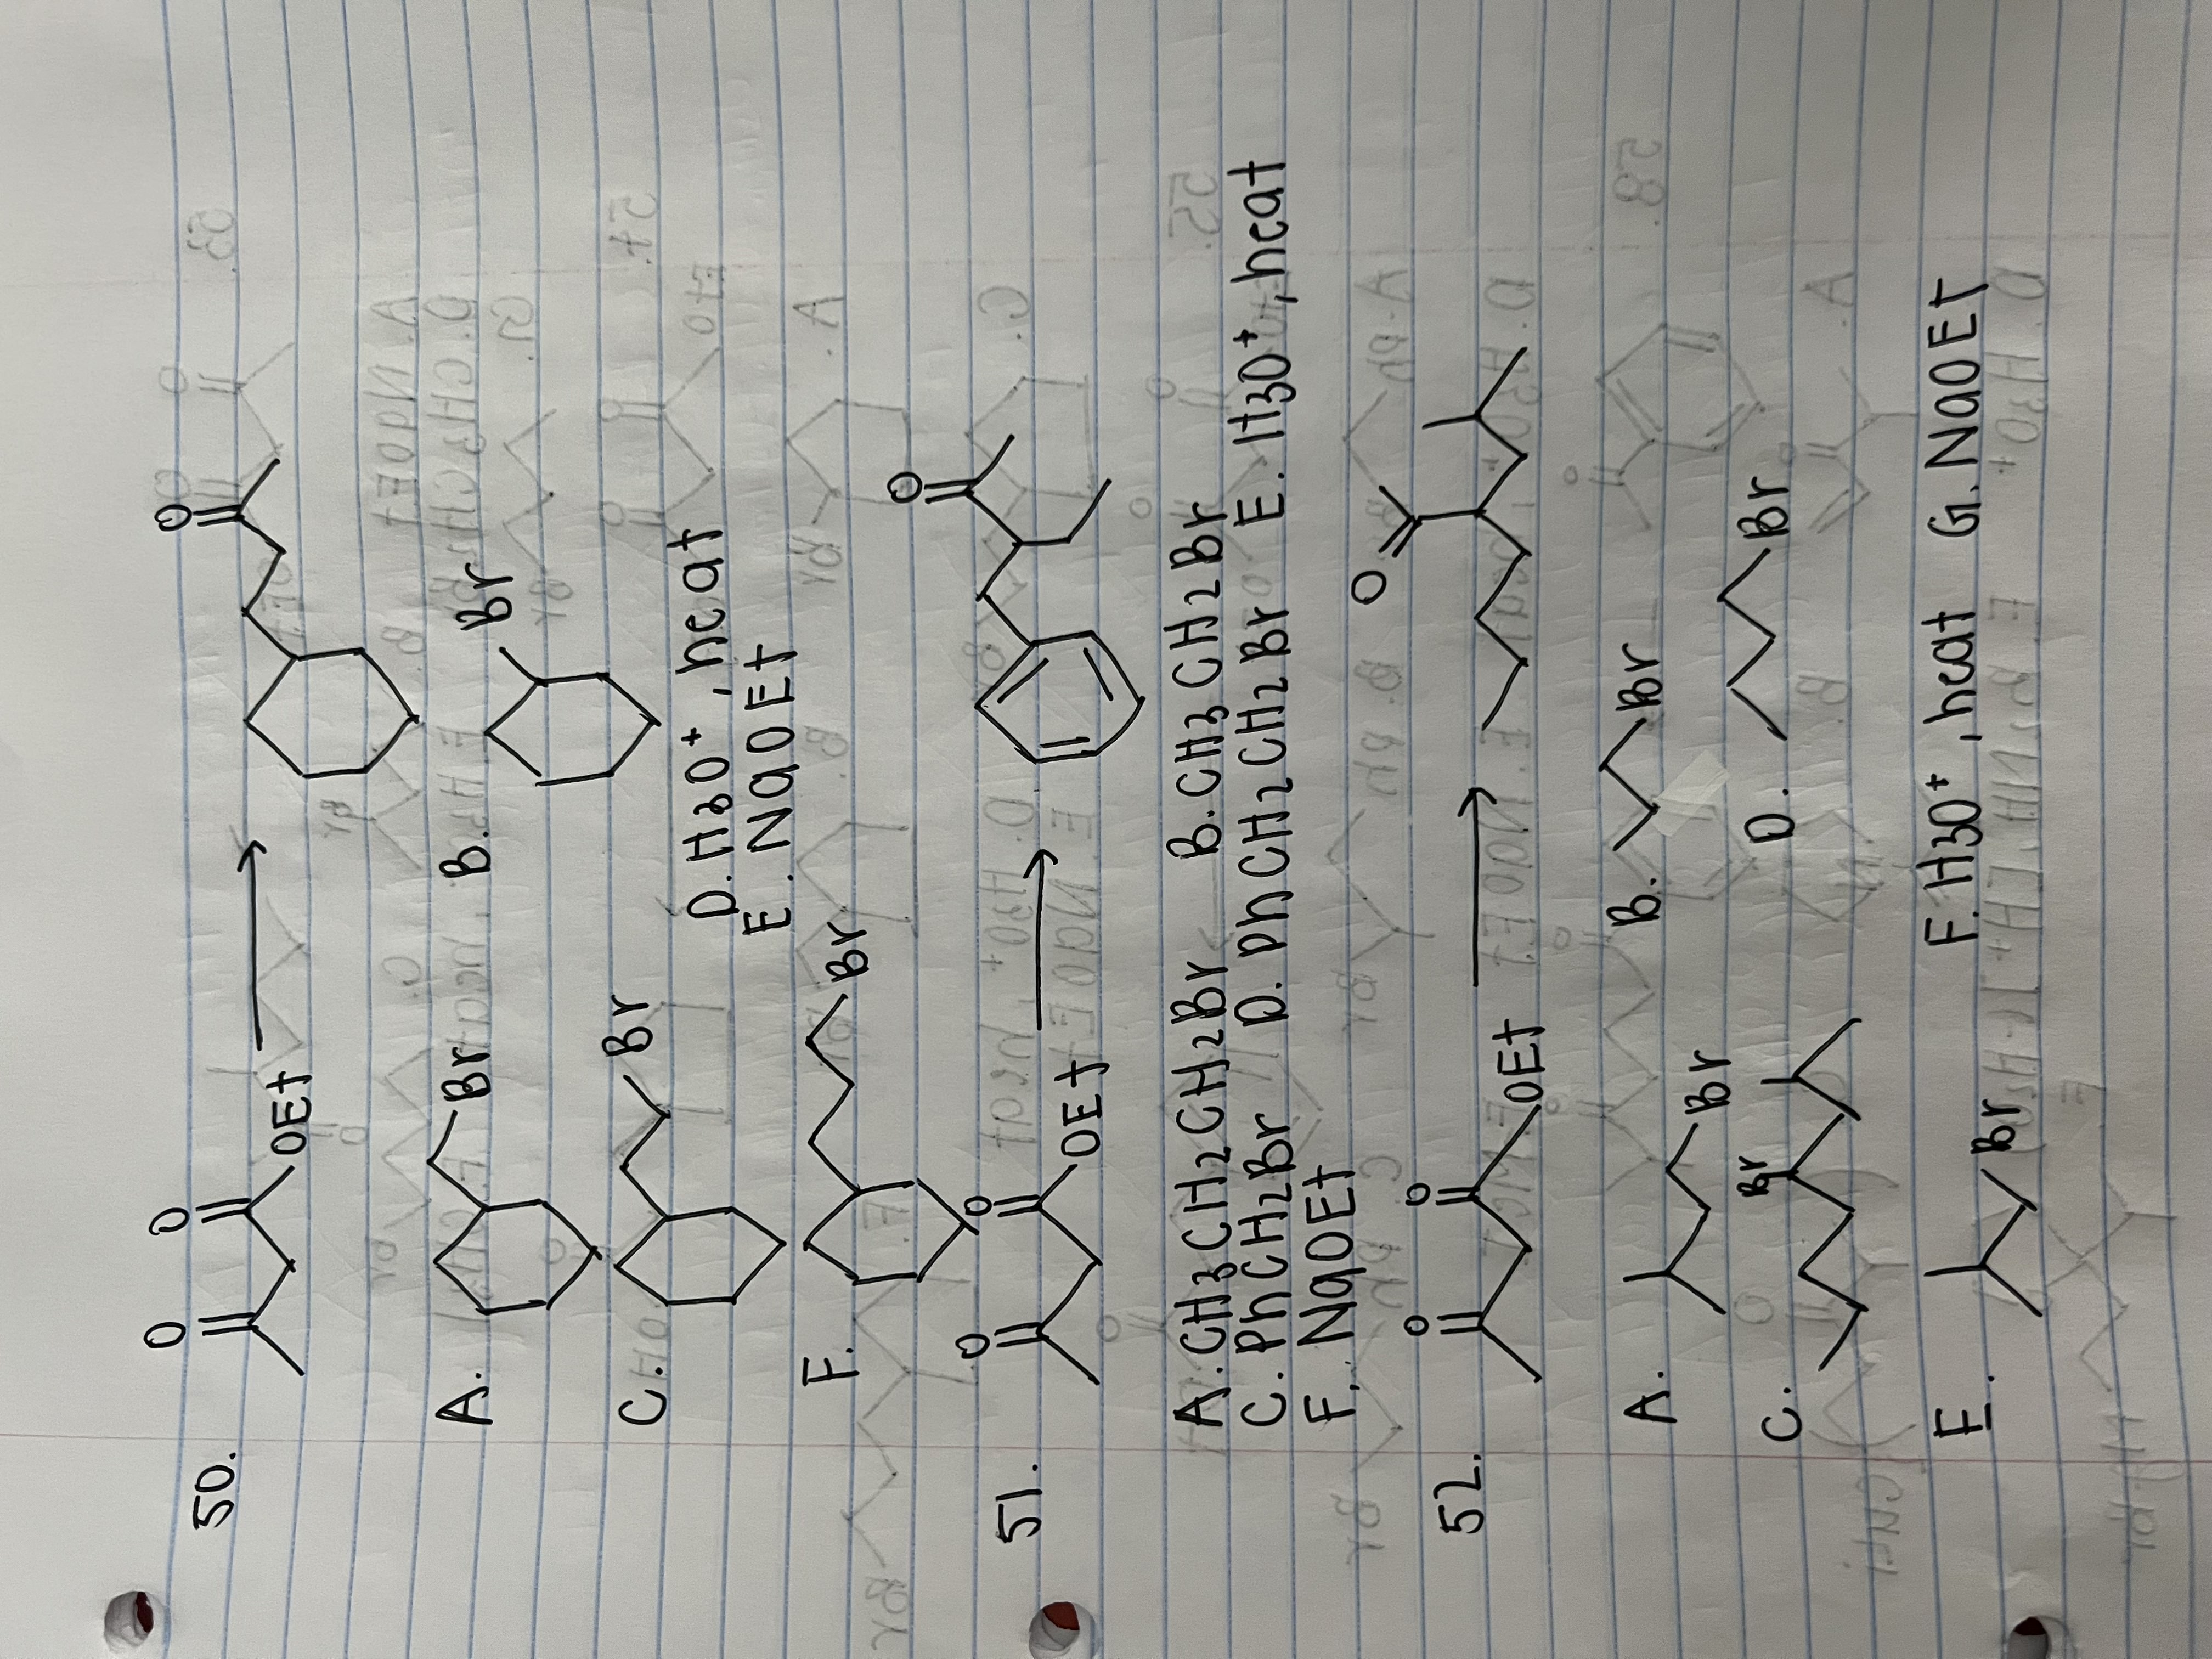 50.
O O
OEt
O
A. Br B. Br
C. Br D. H3O+, heat
E. NaOEt
F. Br
51.
O O
OEt
O
A. CH3CH2CH2Br B. CH3CH2Br
C. PhCH2Br D. PhCH2CH2Br E. H3O+, heat
F. NaOEt
52.
O O
OEt
O
A. Br B. Br
C. Br D. Br
E. Br F. H3O+, heat G. NaOEt